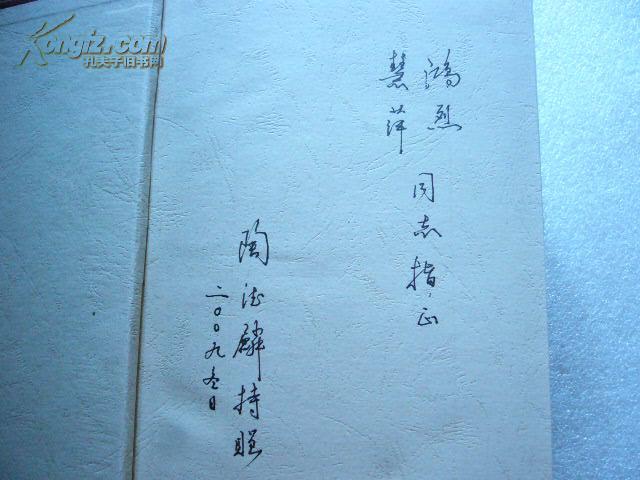 Kongfz.com
孔夫子旧书网
鸿烈
慧萍
同志指正
陶德麟持赠
二〇〇九冬日